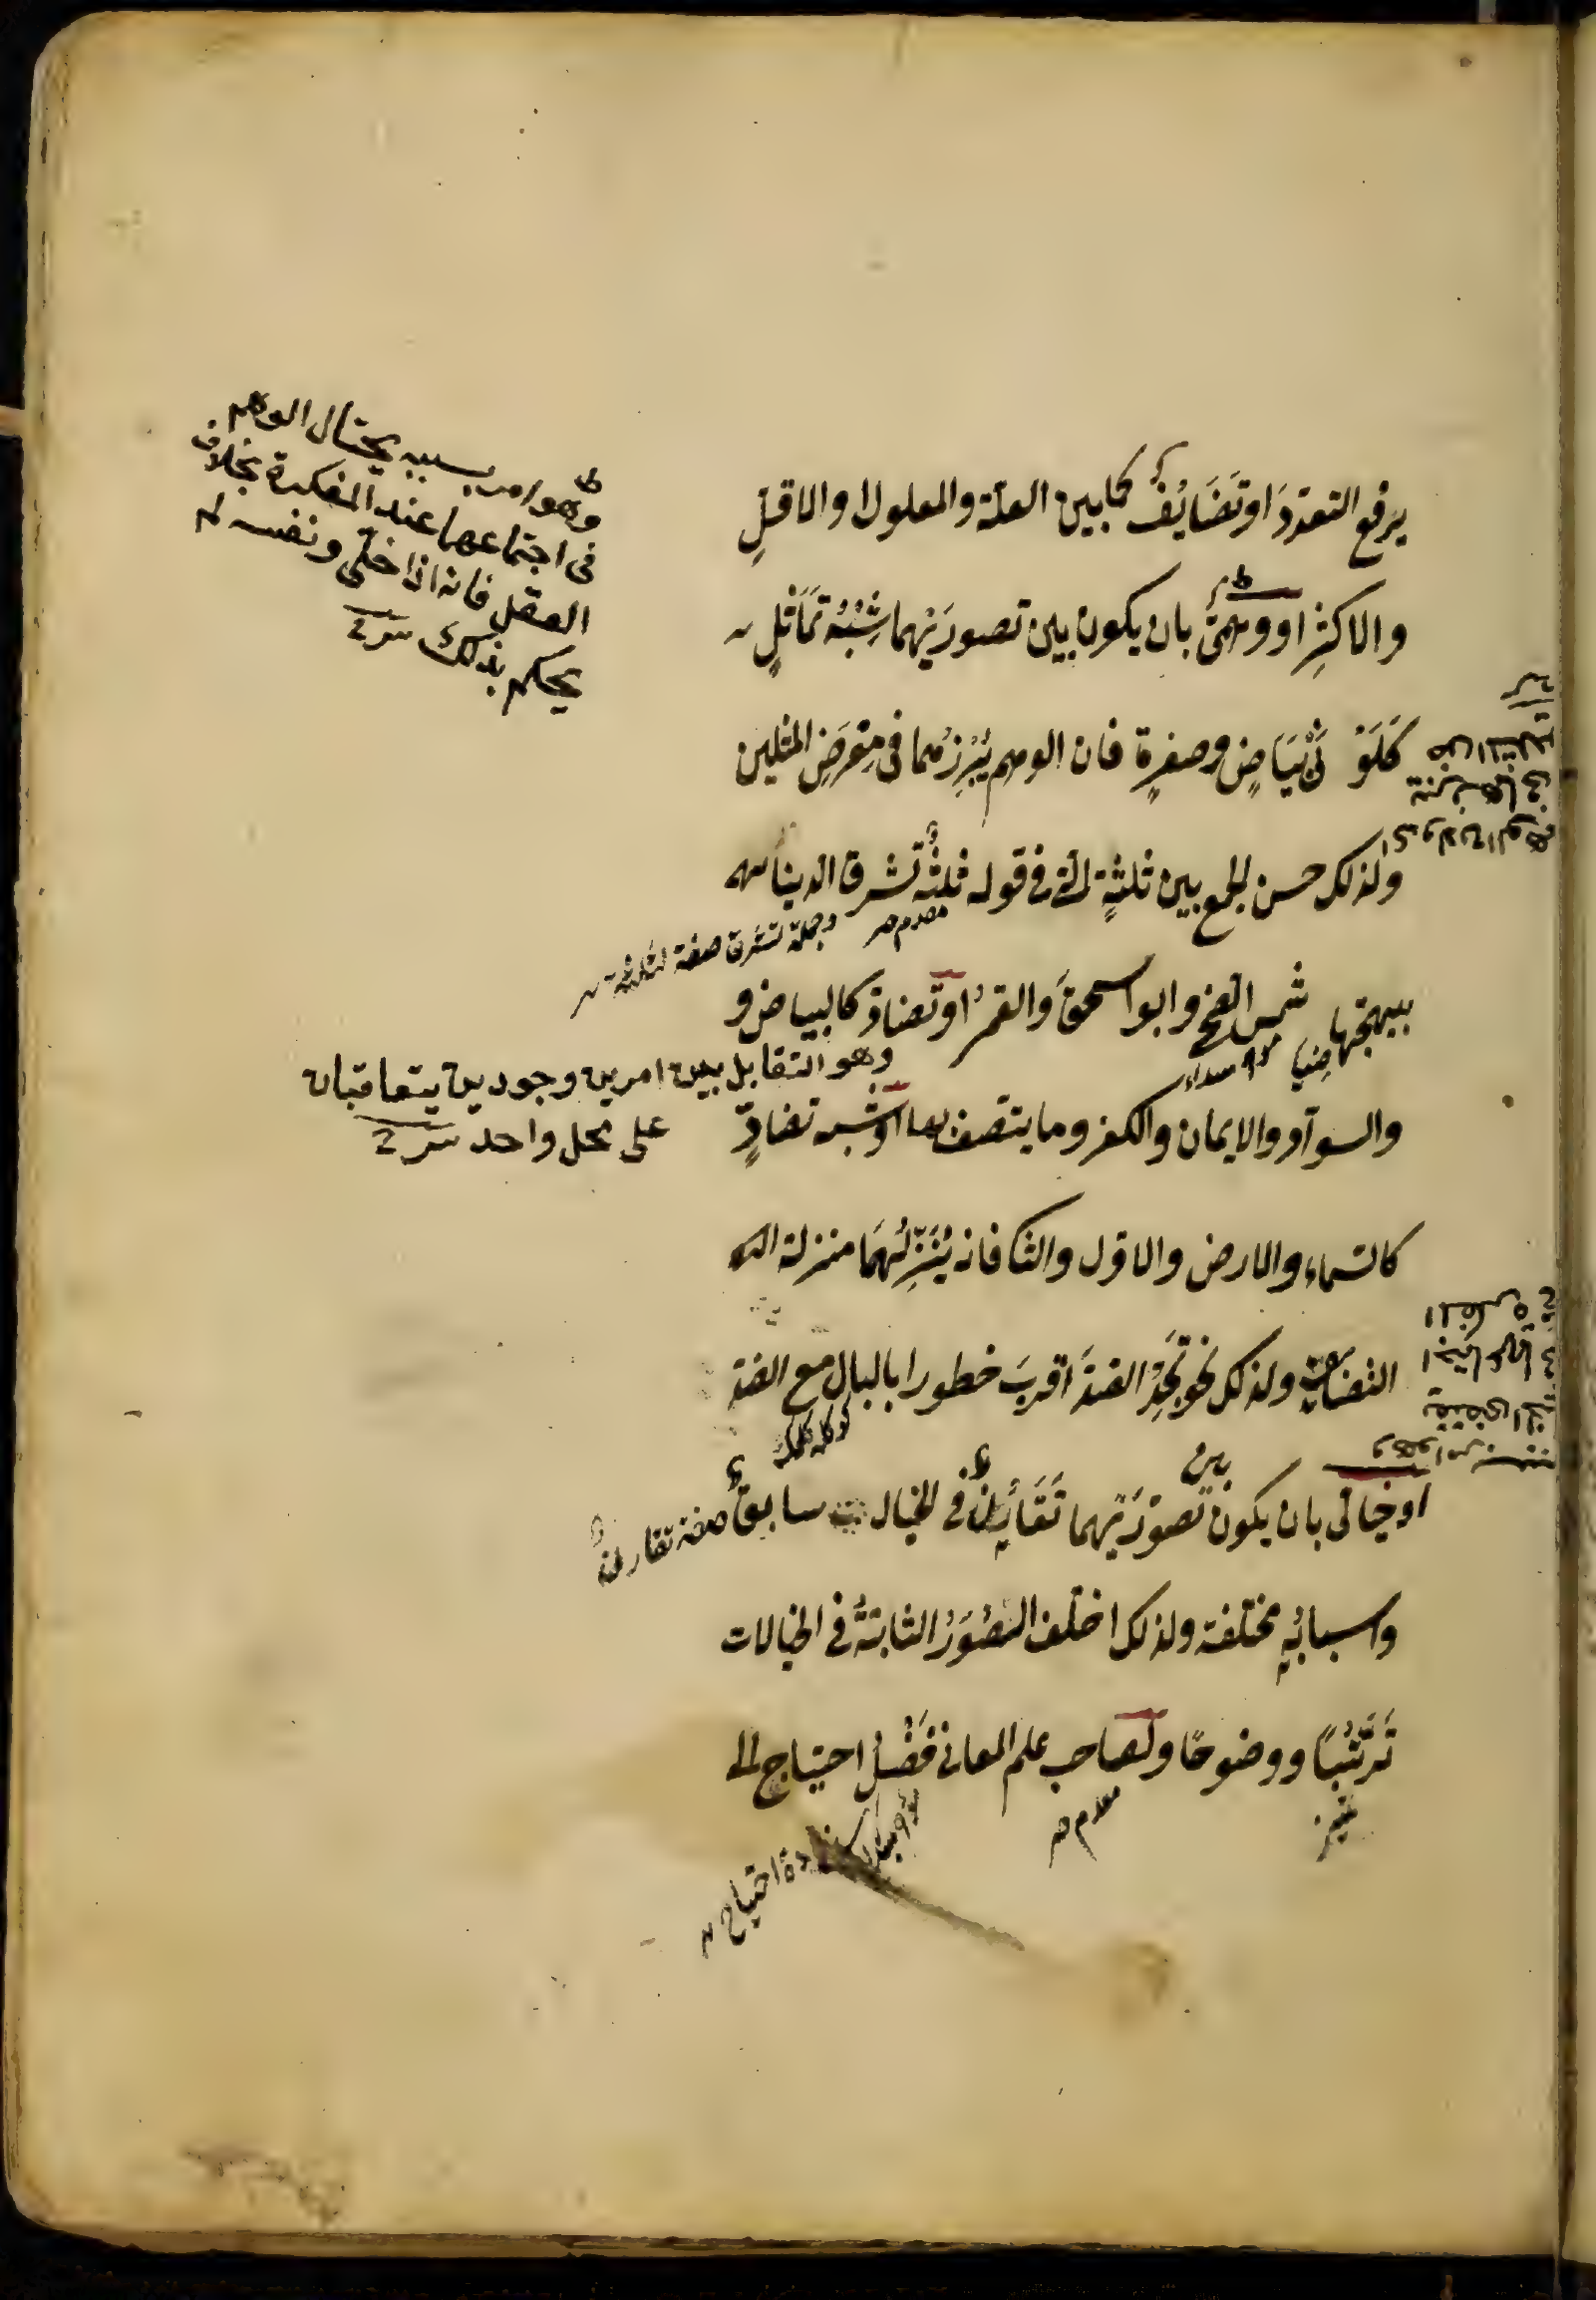 يرفع التعدّدَ او تَضَايُفٌ كما بين العلّة والمعلول او الاقلِّ
والاكثرِ او وهمىٌّ بان يكون بين تصورَيْهما شِبْهُ تَمَاثُلٍ
كَلَوْنَىْ بَيَاضٍ وصفرةٍ فان الوهم يُبْرِزُهما فى مَعْرَضِ المثلين
ولذلك حسن الجمع بين الثلثة التى فى قوله ثلثةٌ تُشرق الدنيا
ببهجتها شمس الضحى وابو اسحقَ والقمرُ او تضادّ كالبياض و
والسوآد والايمان والكفر وما يتصف بها او شبه تضادٍّ
كالسماء والارض والاوّل والثانى فانه يُنَزِّلُهُمَا منزلة
التضايف ولذلك نحو تَجِدُ الضدَّ اقربَ خطورا بالبال مع الضدّ
او خيالىٌّ بان يكون بين تصوّرَيْهما تَقَارُنٌ فى الخيال سابقٌ
واسبابُه مختلفة ولذلك اختلف الصُوَرُ الثابتةُ فى الخيالات
تَرَتُّبًا ووضوحًا ولصاحب علم المعانى فَضْلُ احتياج الى
وهو امر بسببه يحتال الوهم
فى اجتماعهما عند المفكرة بخلاف
العقل فانه اذا خلّى ونفسه لم
يحكم بذلك
وجملة تشرق صفة لثلثة
وهو التقابل بين امرين وجوديين يتعاقبان
على محل واحد
صفة تقارن
تمييز